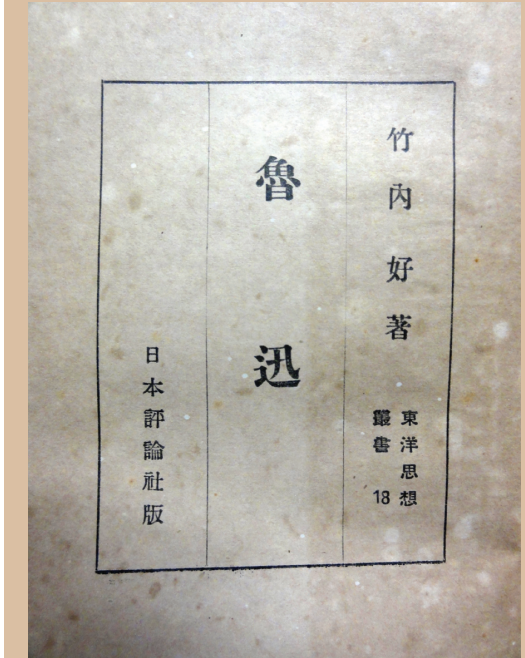 竹內好著
東洋思想
叢書 18
魯迅
日本評論社版